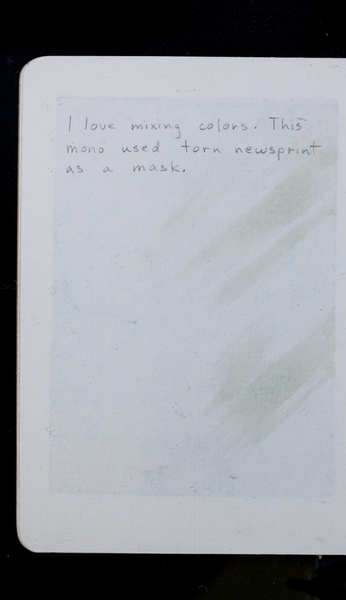 I love mixing colors. This
mono used torn newsprint
as a mask.